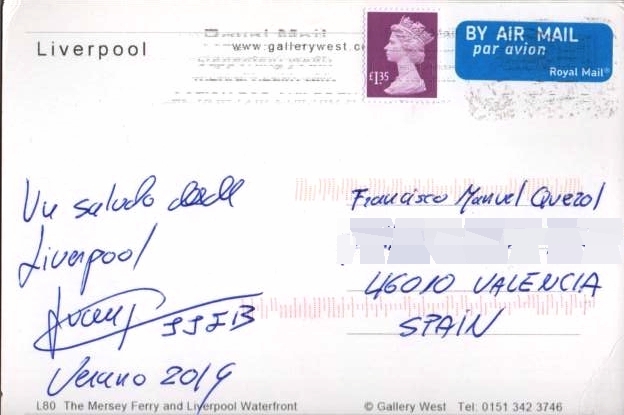 Liverpool
www.gallerywest.co
£1.35
BY AIR MAIL
par avion
Royal Mail®
Un saludo desde
Liverpool
JJEB
Verano 2019
Francisco Manuel Querol
46010 VALENCIA
SPAIN
L80 The Mersey Ferry and Liverpool Waterfront
© Gallery West Tel: 0151 342 3746